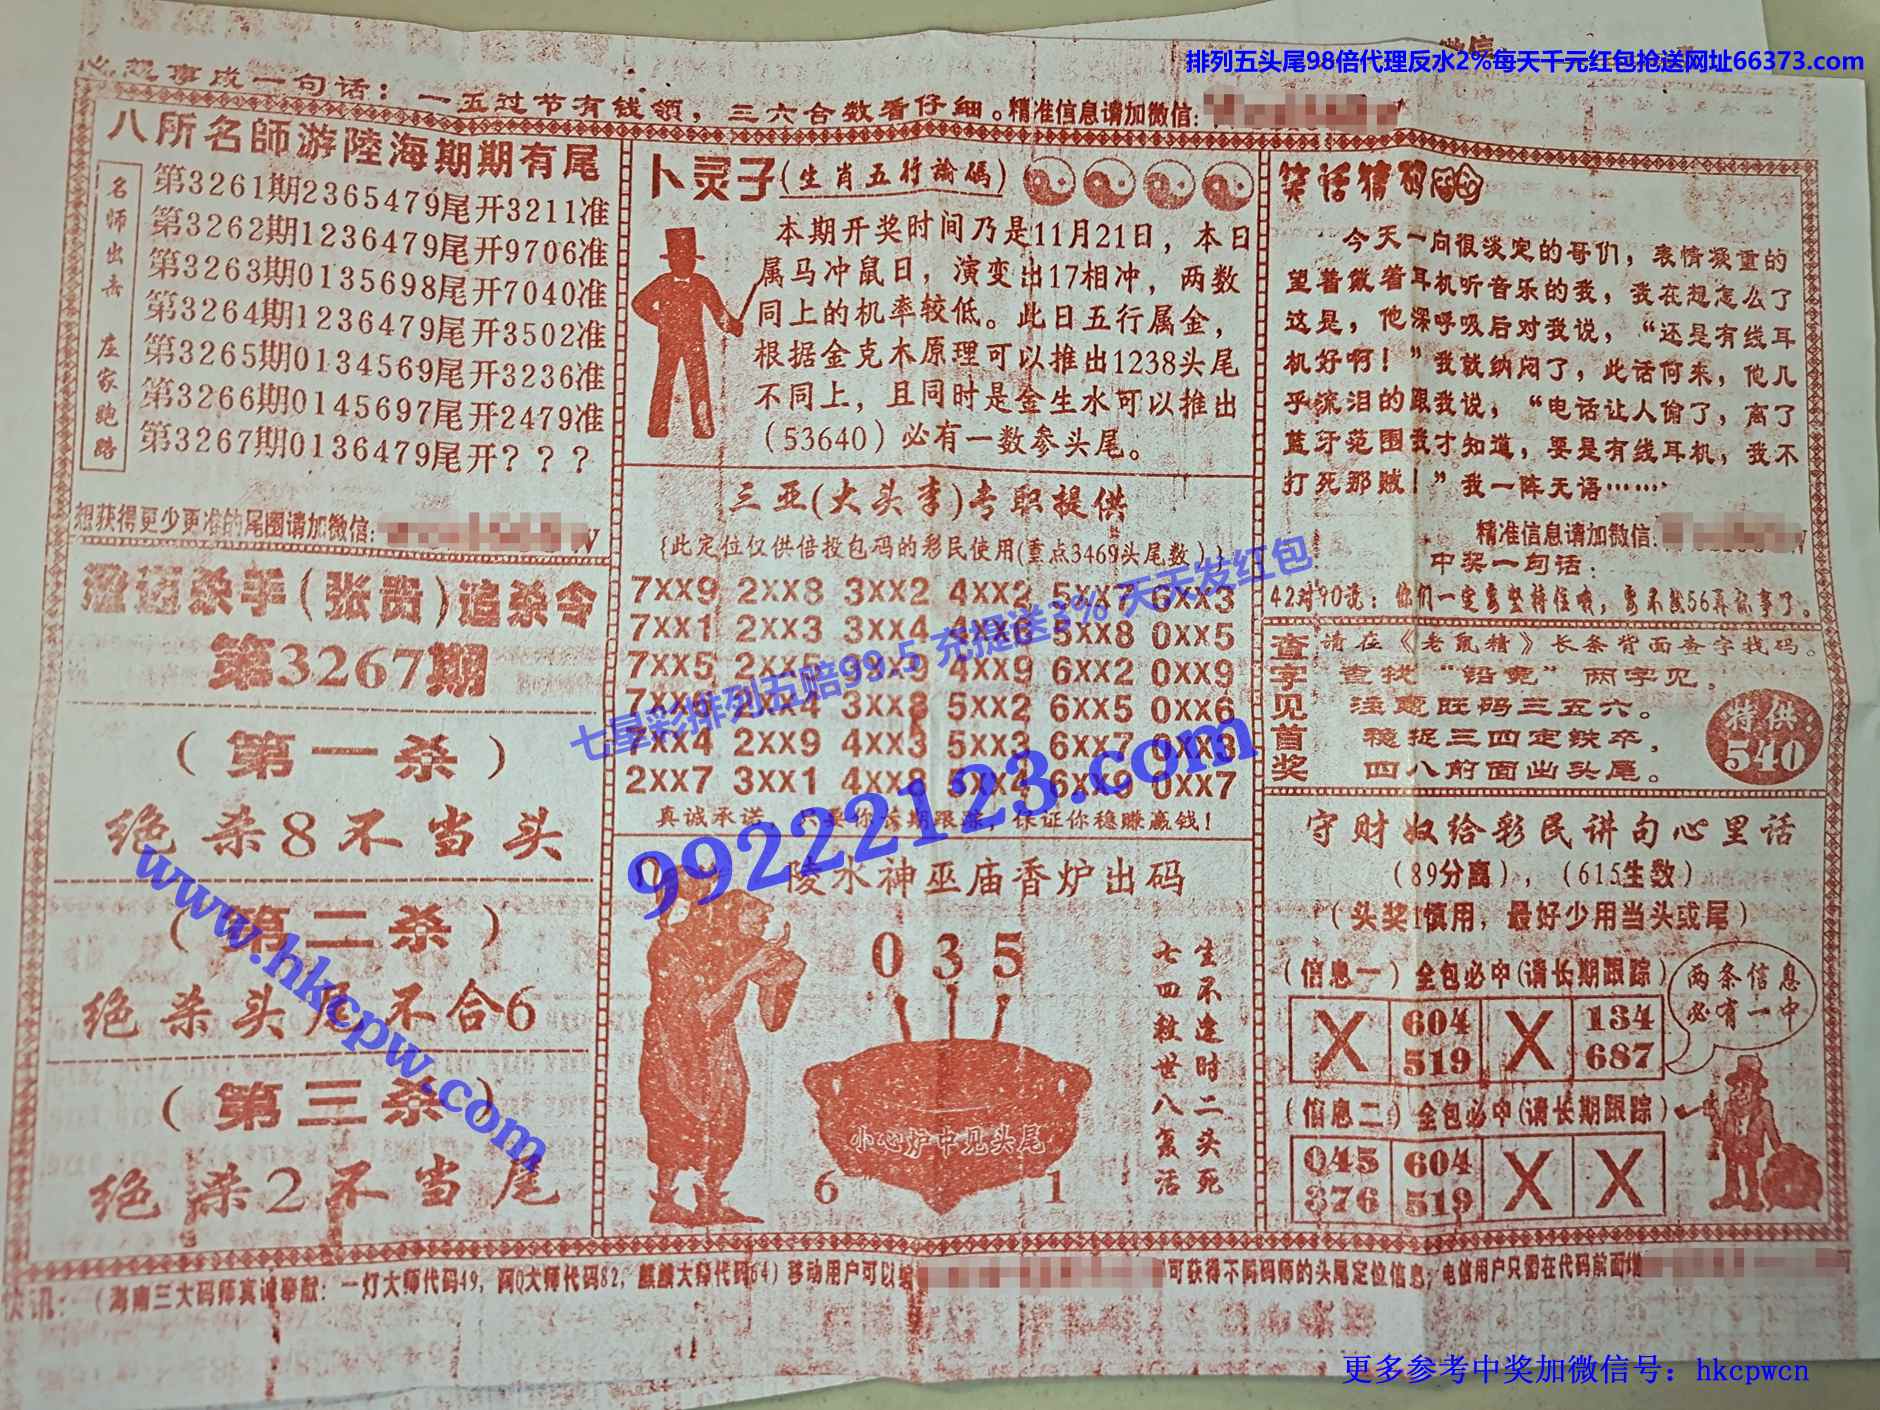 排列五头尾98倍代理反水2%每天千元红包抢送网址66373.com
心想事成一句话：一五过节有钱领，三六合数看仔细。精准信息请加微信:
八所名師游陸海期期有尾
名师出击 庄家跑路
第3261期2365479尾开3211准
第3262期1236479尾开9706准
第3263期0135698尾开7040准
第3264期1236479尾开3502准
第3265期0134569尾开3236准
第3266期0145697尾开2479准
第3267期0136479尾开？？？
想获得更少更准的尾图请加微信:
澄迈杀手(张贵)追杀令
第3267期
（第一杀）
绝杀8不当头
（第二杀）
绝杀头尾不合6
（第三杀）
绝杀2不当尾
卜灵子(生肖五行論碼)
本期开奖时间乃是11月21日，本日
属马冲鼠日，演变出17相冲，两数
同上的机率较低。此日五行属金，
根据金克木原理可以推出1238头尾
不同上，且同时是金生水可以推出
（53640）必有一数参头尾。
三亚(大头李)专职提供
{此定位仅供倍投包码的彩民使用(重点3469头尾数)}
7XX9 2XX8 3XX2 4XX2 5XX7 6XX3
7XX1 2XX3 3XX4 4XX6 5XX8 0XX5
7XX5 2XX5 3XX9 4XX9 6XX2 0XX9
7XX6 2XX4 3XX8 5XX2 6XX5 0XX6
7XX4 2XX9 4XX3 5XX3 6XX7 0XX3
2XX7 3XX1 4XX8 5XX4 6XX9 0XX7
真诚承送，只要你长期跟踪，保证你稳赚赢钱！
陵水神巫庙香炉出码
0 3 5
生不逢时二头死
七四救世八复活
小心炉中见头尾
6 1
笑话猜码
今天一向很淡定的哥们，表情凝重的
望着戴着耳机听音乐的我，我在想怎么了
这是，他深呼吸后对我说，“还是有线耳
机好啊！”我就纳闷了，此话何来，他几
乎流泪的跟我说，“电话让人偷了，离了
蓝牙范围我才知道，要是有线耳机，我不
打死那贼！”我一阵无语……
精准信息请加微信:
中奖一句话：
42对90说：你们一定要坚持住哦，要不就56再就事了。
查字见首奖
请在《老鼠精》长条背面查字找码。
查找“铅竞”两字见，
注意旺码三五六。
稳捉三四定铁卒，
四八前面出头尾。
特供：
540
守财奴给彩民讲句心里话
（89分离），（615生数）
（头奖1慎用，最好少用当头或尾）
（信息一）全包必中(请长期跟踪)
X 604 519 X 134 687
两条信息
必有一中
（信息二）全包必中(请长期跟踪)
045 376 604 519 X X
快讯：（海南三大码师真诚奉献：一灯大师代码49，阿Q大师代码82，麒麟大师代码64）移动用户可以编
可获得不同码师的头尾定位信息；电信用户只需在代码前面增
七星彩排列五赔99.5 充提送3% 天天发红包
99222123.com
www.hkcpw.com
更多参考中奖加微信号：hkcpwcn